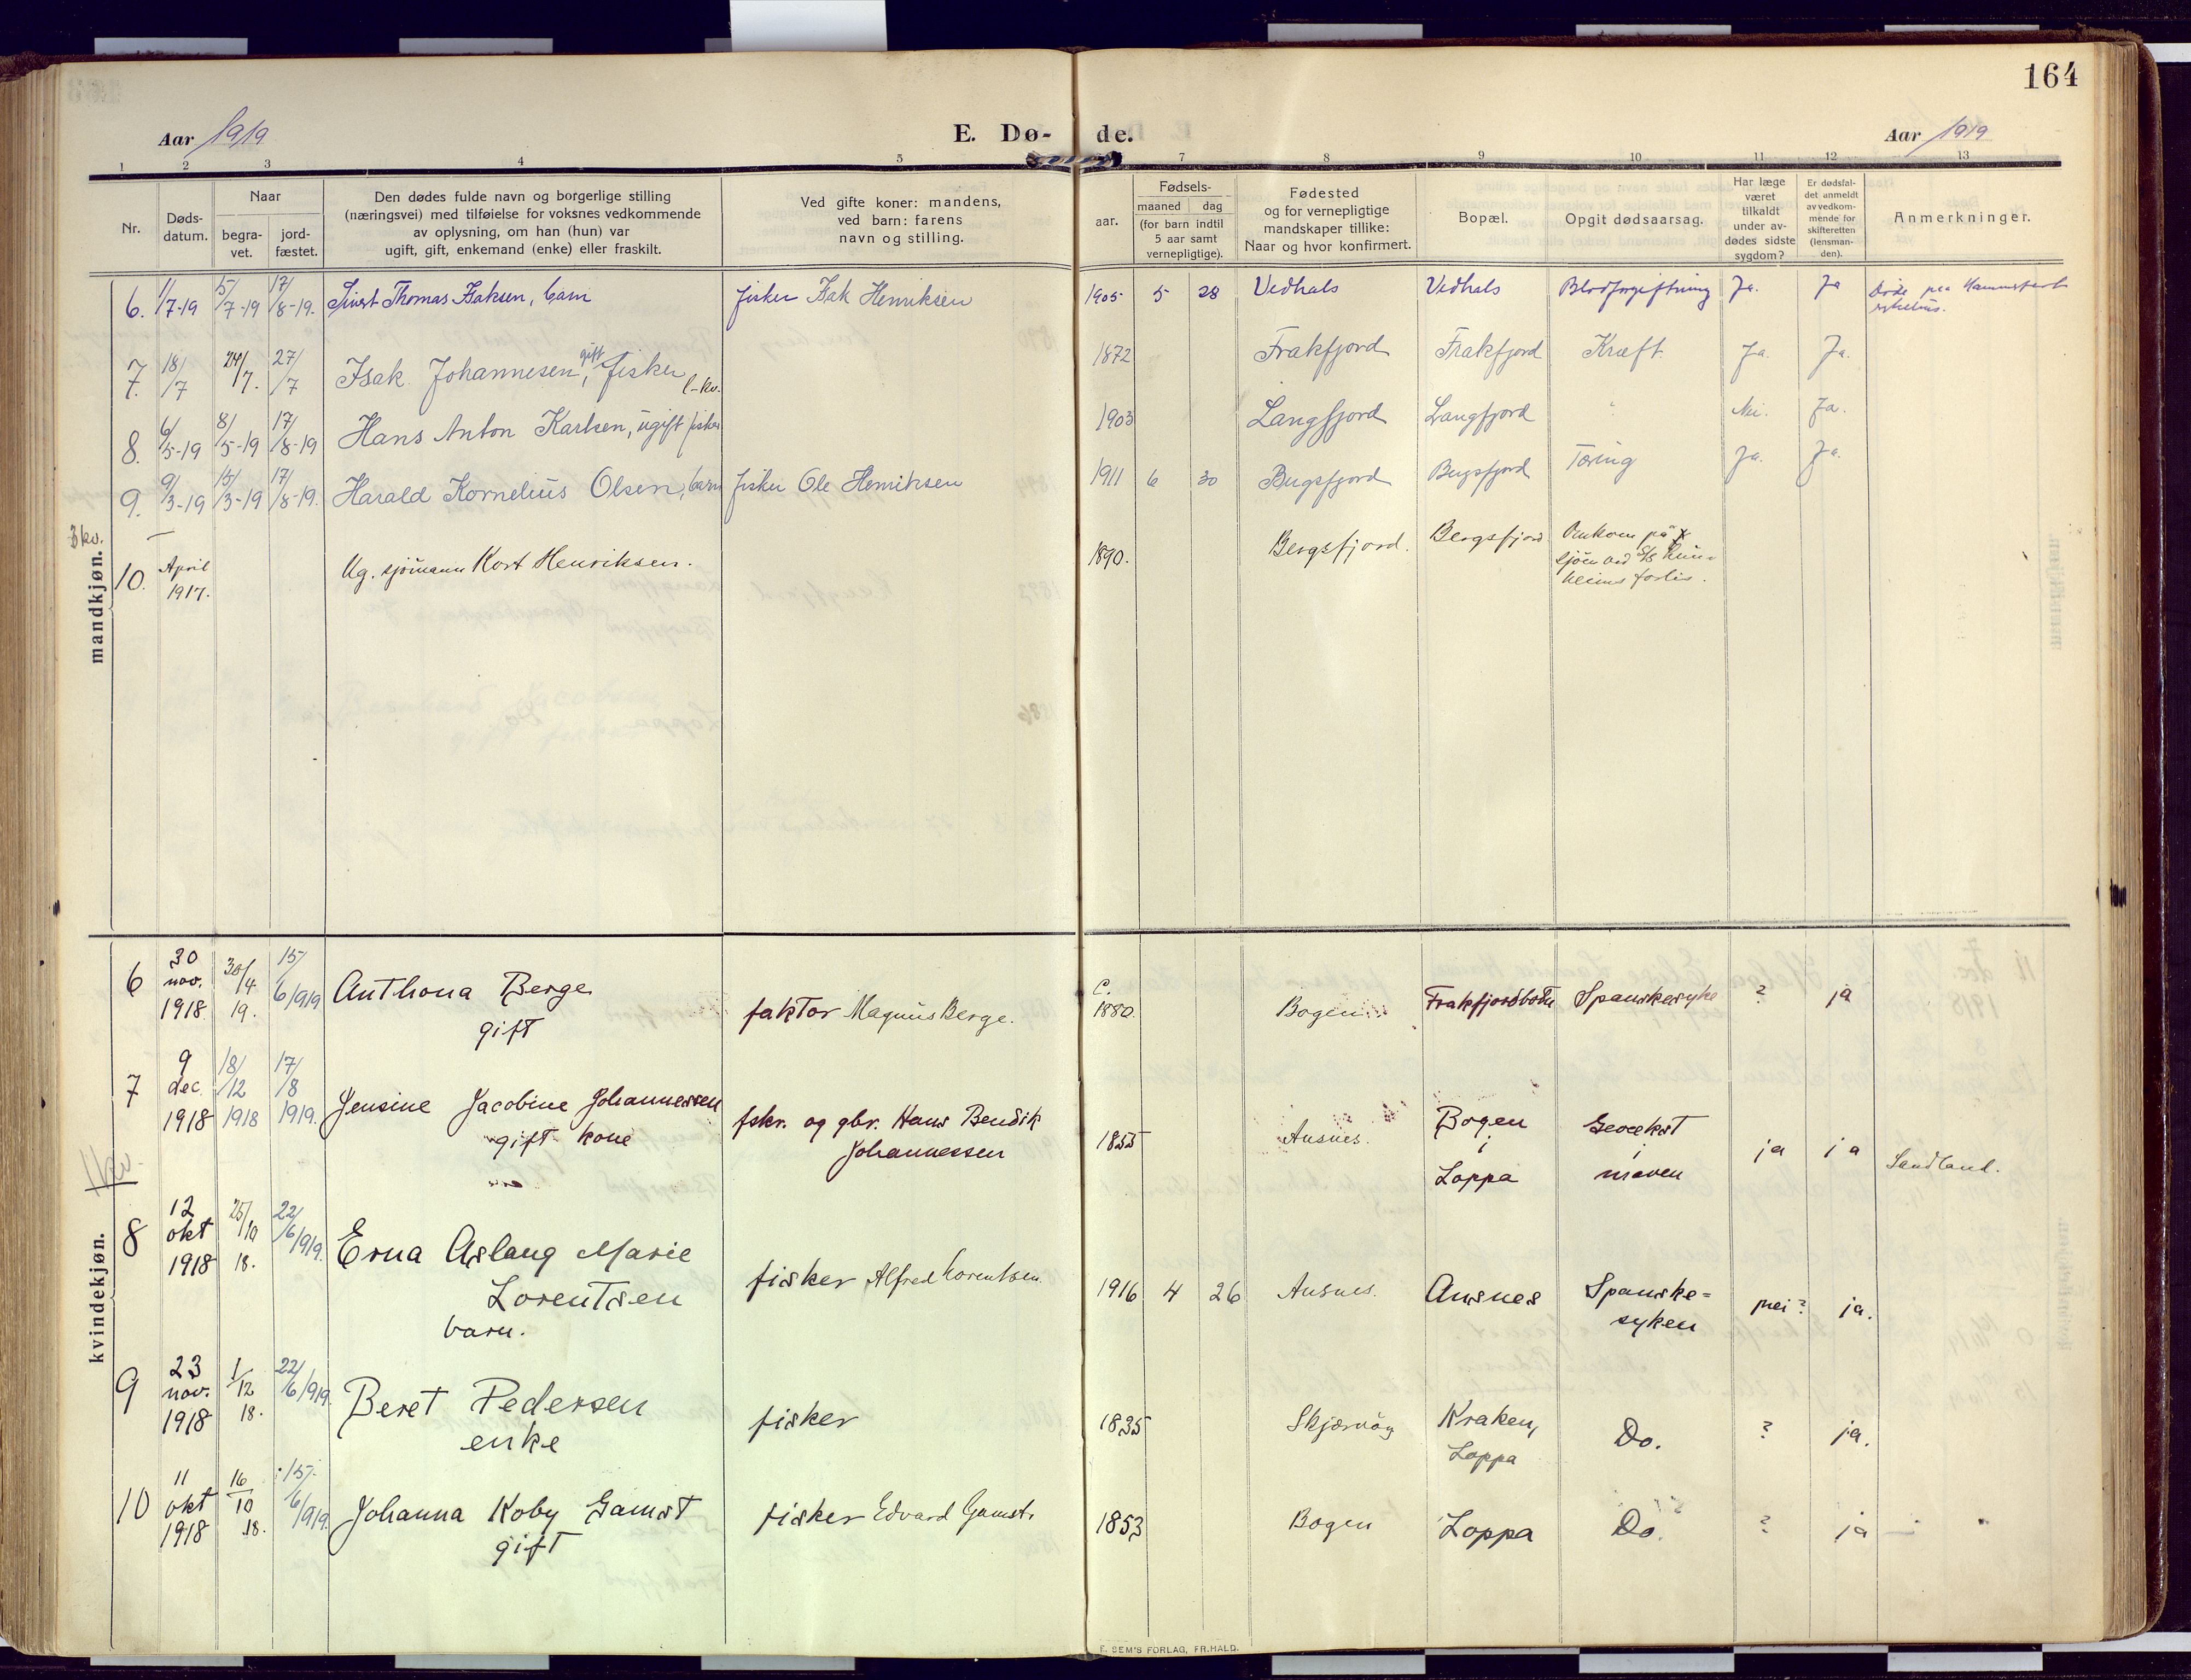 164
Aar 1919 E. Dø- de. Aar 1919
1 2 3 4 5 7 8 9 10 11 12 13
Nr.
Døds-
datum.
Naar
begra-
vet.
jord-
fæstet.
Den dødes fulde navn og borgerlige stilling
(næringsvei) med tilføielse for voksnes vedkommende
av oplysning, om han (hun) var
ugift, gift, enkemand (enke) eller fraskilt.
Ved gifte koner: mandens,
ved barn: farens
navn og stilling.
aar.
Fødsels-
maaned dag
(for barn indtil
5 aar samt
vernepligtige).
Fødested
og for vernepligtige
mandskaper tillike:
Naar og hvor konfirmert.
Bopæl.
Opgit dødsaarsag.
Har læge
været
tilkaldt
under av-
dødes sidste
sygdom?
Er dødsfal-
det anmeldt
av vedkom-
mende for
skifteretten
(lensman-
den).
Anmerkninger.
mandkjøn.
3 kv.
6. 11/7-19 15/7-19 17/8-19. Sivert Thomas Isaksen, barn fisker Isak Henriksen 1905 5 28 Vedhals Vedhals Blodforgiftning Ja. Ja Døde paa Hammerfest
sykehus.
7. 18/7 24/7. 27/7 Isak Johannesen, gift fisker l-kv. 1872 Frakfjord Frakfjord Kræft. Ja. Ja.
8. 6/5-19 8/5-19 17/8-19 Hans Anton Karlsen, ugift fisker 1903 Langfjord Langfjord " Nei. Ja.
9. 9/3-19 15/3-19 17/8-19. Harald Kornelius Olsen, barn fisker Ole Henriksen 1911 6 30 Bugsfjord Bugsfjord Tæring Ja. Ja.
10. April
1917. Ug. sjömann Kort Henriksen. 1890. Bergsfjord. Bergsfjord Omkom på
sjöen ved S/S
forlis.
kvindekjøn.
6 30
nov.
1918 30/4
19. 15/6 1919 Anthona Berge
gift faktor Magnus Berge. c.
1880. Bogen Frakfjordbotn Spanskesyke ? ja
7 9
dec.
1918 18/12
1918 17/8
1919. Jensine Jacobine Johannessen
gift kone fskr. og gbr. Hans Bendik
Johannessen 1855 Ausnes. Bogen
i
Loppa Gevekst
i
maven ja ja Sandland.
8 12
okt
1918 25/10
18. 22/6 1919. Erna Aslaug Marie
Lorentsen
barn. fisker Alfred Lorentsen. 1916 4 26 Ausnes. Ausnes Spanske=
syken nei? ja.
9 23
nov.
1918 1/12
18. 22/6 1919. Beret Pedersen
enke fisker 1835 Skjærvöy Kraken,
Loppa Do. ? ja.
10 11
okt
1918 16/10
18. 15/6 1919. Johanna Koby Gamst
gift fisker Edvard Gamst. 1853 Bogen Loppa Do. ? ja
E. SEM'S FORLAG, FR.HALD.